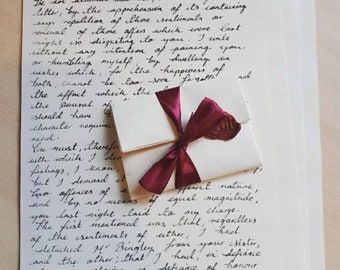 Be not alarmed
letter, by the apprehension of its containing
any repetition of those sentiments or
renewal of those offers which were last
night so disgusting to you. I write
without any intention of paining you
or humbling myself, by dwelling on
wishes which, for the happiness of
both, cannot be too soon forgotten and
the effort which the
the perusal of
should have
character require
read.
You must, therefore
with which I
feelings, I know,
but I demand it
Two offences of a different nature,
and by no means of equal magnitude,
you last night laid to my charge.
The first mentioned was, that regardless
of the sentiments of either, I had
detached Mr Bingley from your sister,
and the other, that I had, in defiance
defiance of honour